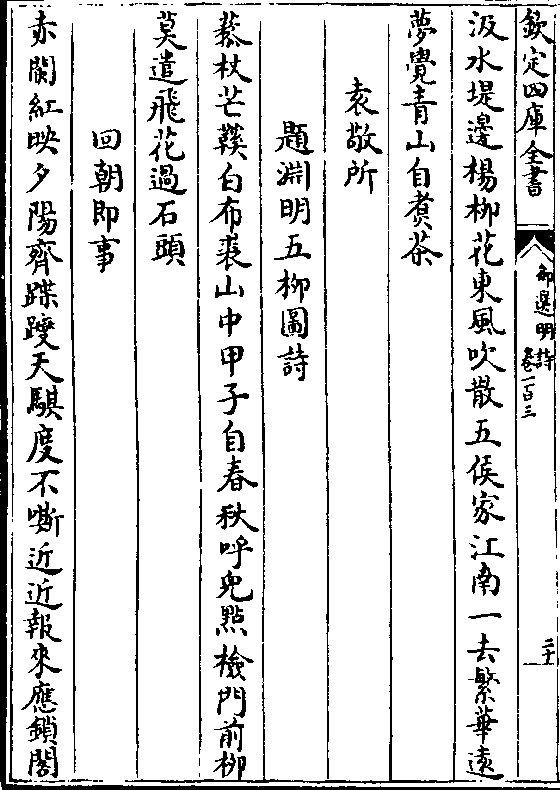 欽定四庫全書
御選明詩
卷一百三
二十
汲水堤邊楊柳花東風吹散五侯家江南一去繁華遠
夢覺青山自煑茶
袁敬所
題淵明五柳圖詩
藜杖芒鞵白布裘山中甲子自春秋呼兒點檢門前柳
莫遣飛花過石頭
回朝即事
赤闌紅映夕陽齊蹀躞天騏度不嘶近近報來應鎖閣